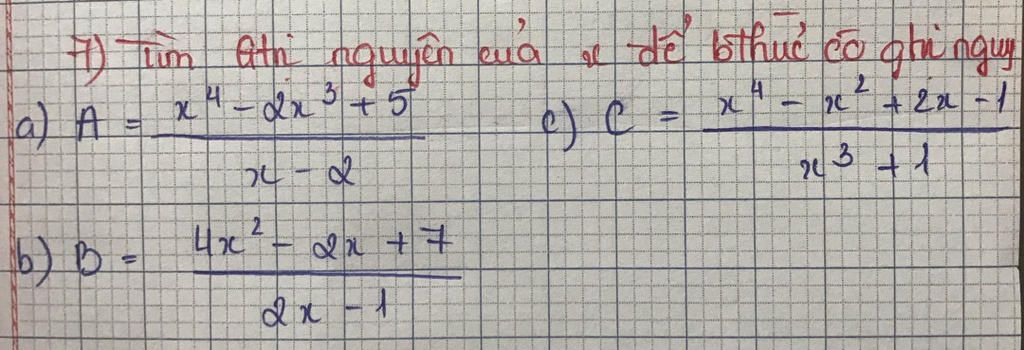 7) Tìm gtri nguyên của x để bthức có gtri nguy
a) A = x⁴ - 2x³ + 5 / x - 2
c) C = x⁴ - x² + 2x - 1 / x³ + 1
b) B = 4x² - 2x + 7 / 2x - 1